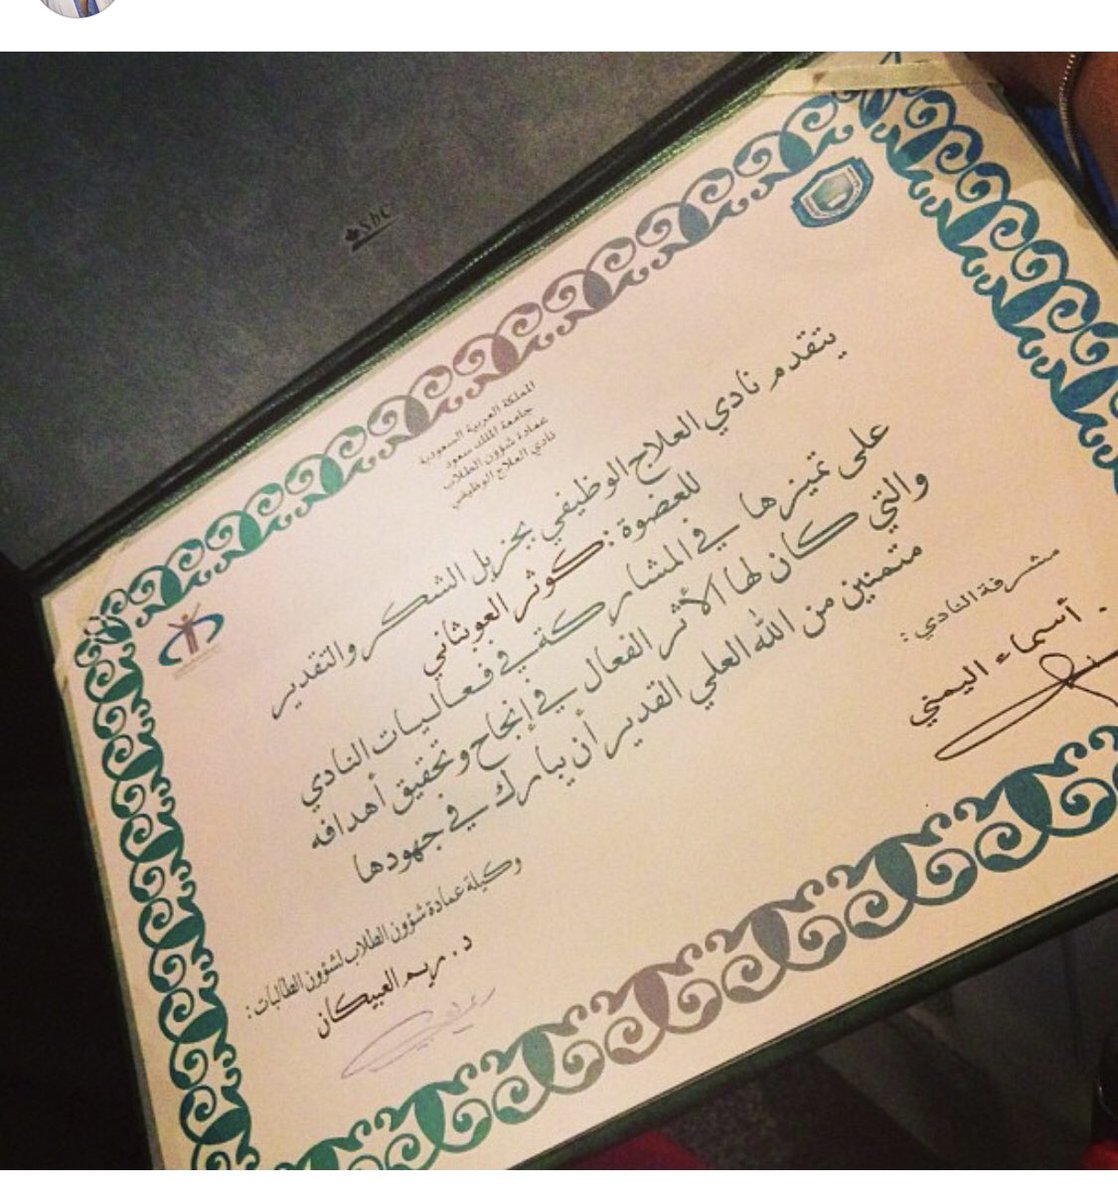 sbc
المملكة العربية السعودية
جامعة الملك سعود
عمادة شؤون الطلاب
نادي العلاج الوظيفي
يتقدم نادي العلاج الوظيفي بجزيل الشكر والتقدير
للعضوة : كوثر العوبثاني
على تميزها في المشاركة في فعاليات النادي
والتي كان لها الأثر الفعال في إنجاح وتحقيق أهدافه
متمنين من الله العلي القدير أن يبارك في جهودها
مشرفة النادي :
أ. أسماء اليمني
وكيلة عمادة شؤون الطلاب لشؤون الطالبات :
د. ريم العبيكان